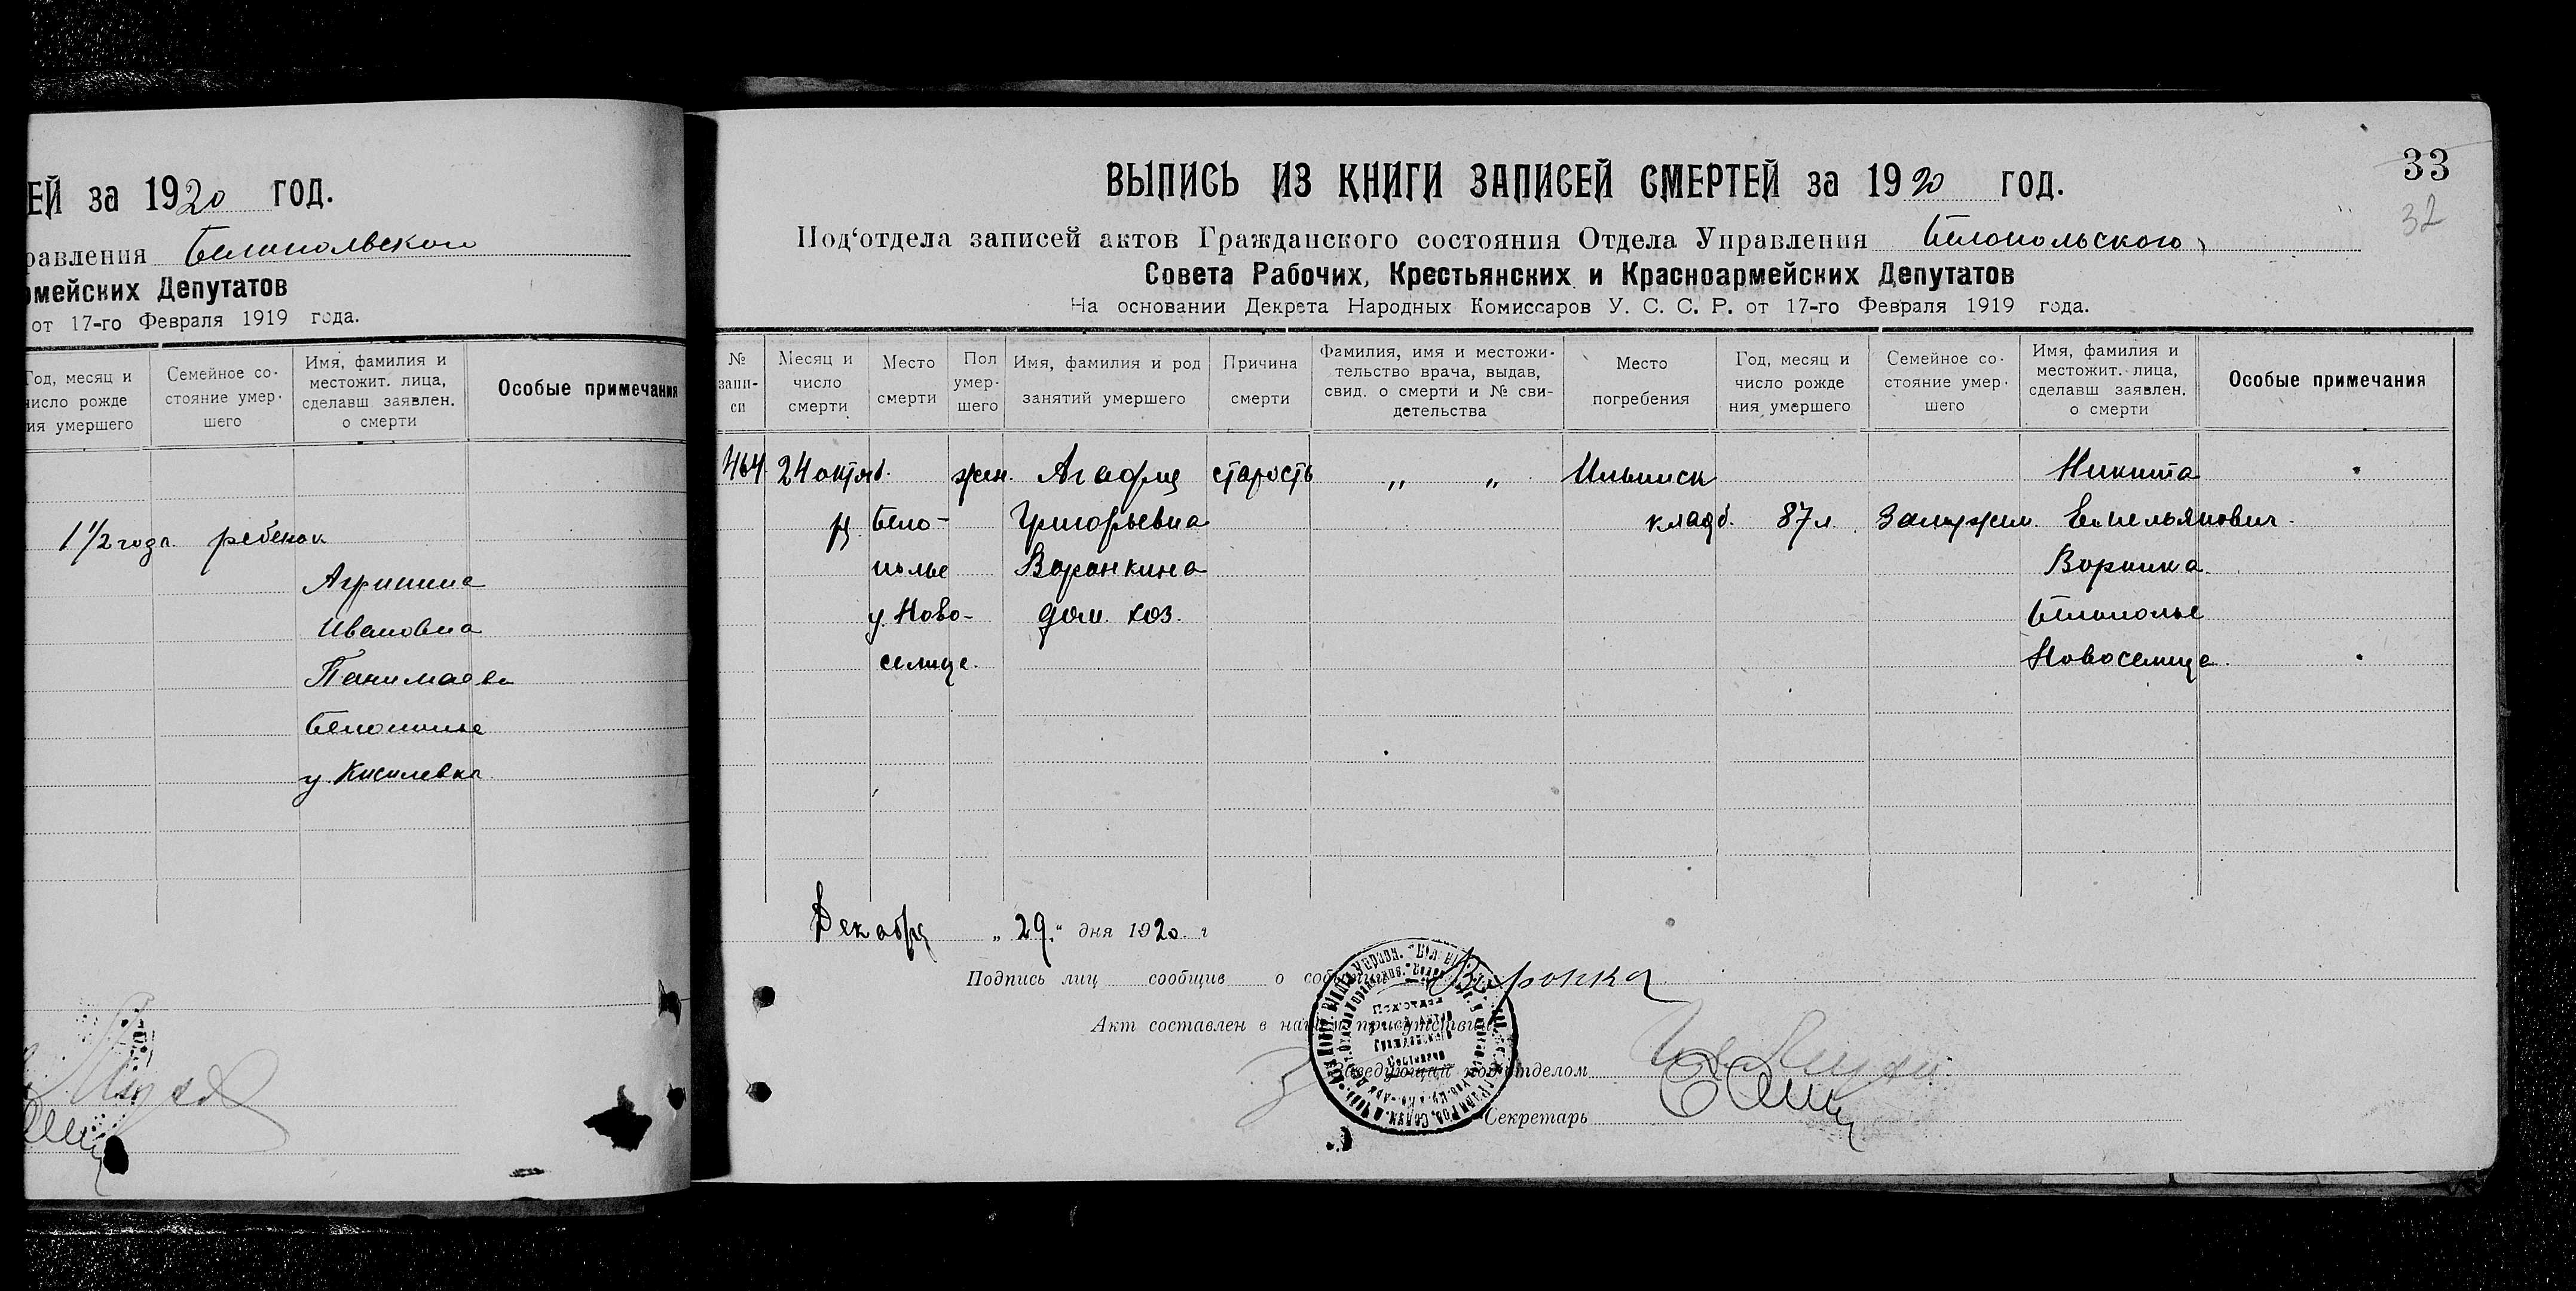 ЕЙ за 1920 год.
равления Белопольского
рмейских Депутатов
от 17-го Февраля 1919 года.
Год, месяц и число рожде ния умершего
Семейное со- стояние умер- шего
Имя, фамилия и местожит. лица, сделавш заявлен. о смерти
Особые примечания
1 1/2 года. ребенок
Ивановна
Белополье
ВЫПИСЬ ИЗ КНИГИ ЗАПИСЕЙ СМЕРТЕЙ за 1920 год.
33
32
Под'отдела записей актов Гражданского состояния Отдела Управления Белопольского
Совета Рабочих, Крестьянских и Красноармейских Депутатов
На основании Декрета Народных Комиссаров У. С. С. Р. от 17-го Февраля 1919 года.
№ запи- си
Месяц и число смерти
Место смерти
Пол умер- шего
Имя, фамилия и род занятий умершего
Причина смерти
Фамилия, имя и местожи- тельство врача, выдав, свид. о смерти и № сви- детельства
Место погребения
Год, месяц и число рожде ния умершего
Семейное со- стояние умер- шего
Имя, фамилия и местожит. лица, сделавш заявлен. о смерти
Особые примечания
464. 24 октяб. жен. Агафия старость „ „ Ильинск Никита
я Бело- Григорьевна кладб. 87 л. Замужем. Емельянович.
полье Воронкина Воронка
у. Ново- дом. хоз. Белополье
селице. Новоселице.
Декабря „29.“ дня 1920. г
Подпись лиц сообщив о Воронка
Акт составлен в
Заведующий под'отделом
Секретарь